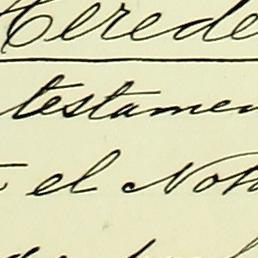 Herede
testamen
el Nota